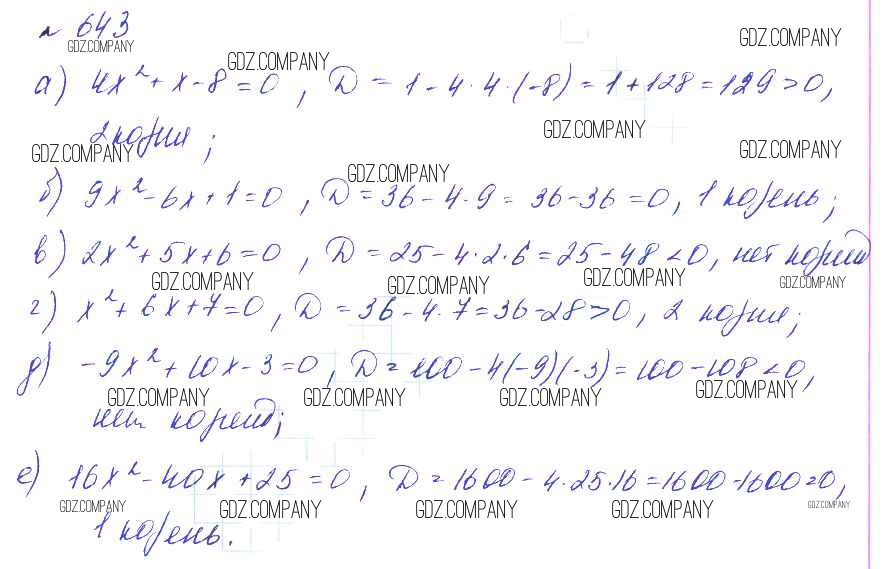 № 643
GDZ.COMPANY
GDZ.COMPANY
GDZ.COMPANY
а) 4x² + x - 8 = 0, D = 1 - 4 · 4 · (-8) = 1 + 128 = 129 > 0,
GDZ.COMPANY
2 корня;
GDZ.COMPANY
GDZ.COMPANY
GDZ.COMPANY
б) 9x² - 6x + 1 = 0, D = 36 - 4 · 9 = 36 - 36 = 0, 1 корень;
в) 2x² + 5x + 6 = 0, D = 25 - 4 · 2 · 6 = 25 - 48 < 0, нет корней
GDZ.COMPANY
GDZ.COMPANY
GDZ.COMPANY
GDZ.COMPANY
г) x² + 6x + 7 = 0, D = 36 - 4 · 7 = 36 - 28 > 0, 2 корня;
д) -9x² + 10x - 3 = 0, D = 100 - 4(-9)(-3) = 100 - 108 < 0,
GDZ.COMPANY
GDZ.COMPANY
GDZ.COMPANY
GDZ.COMPANY
нет корней;
е) 16x² - 40x + 25 = 0, D = 1600 - 4 · 25 · 16 = 1600 - 1600 = 0,
GDZ.COMPANY
GDZ.COMPANY
GDZ.COMPANY
GDZ.COMPANY
GDZ.COMPANY
1 корень.